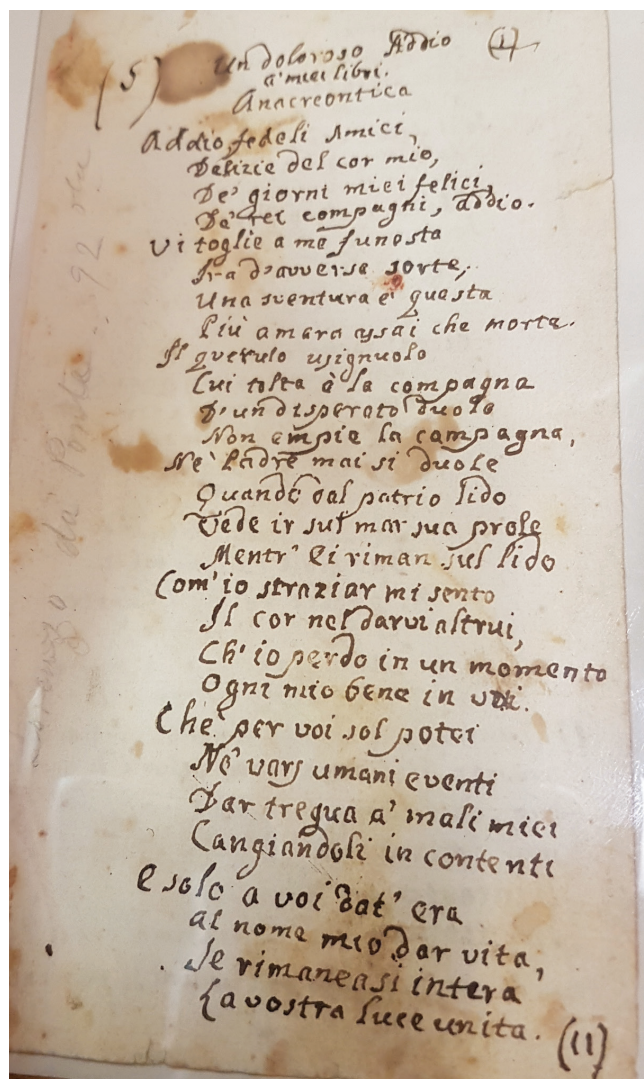 (5) Un doloroso Addio (1)
a' miei libri.
Anacreontica
Addio fedeli Amici,
Delizie del cor mio,
De' giorni miei felici,
De' rei compagni, addio.
Vi toglie a me funesta
Ira d'avversa sorte,
Una sventura è questa
Più amara assai che morte.
Il querulo usignuolo
Cui tolta à la compagna
D'un disperato duolo
Non empie la campagna,
Nè Padre mai si duole
Quando dal patrio lido
Vede ir sul mar sua prole
Mentr' Ei riman sul lido
Com' io straziar mi sento
Il cor nel darvi altrui,
Ch' io perdo in un momento
Ogni mio bene in
Chè per voi sol potei
Ne' varj umani eventi
Dar tregua a' mali miei
Cangiandoli in contenti
E solo a voi dat' era
Al nome mio dar vita,
Se rimaneasi intera
La vostra luce unita. (11)
Lorenzo da Ponte